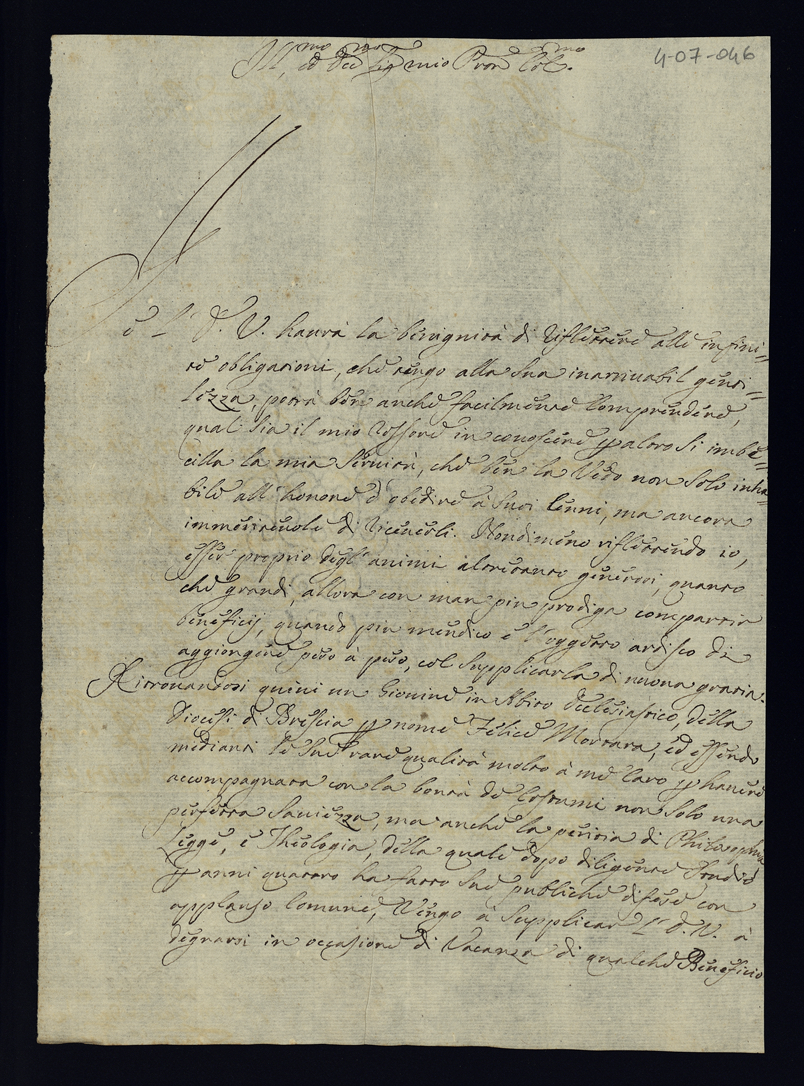 Ill.mo ed Ecc.mo Sig.r mio Pron Col.mo
4-07-046
Se L' E. V. haurà la benignità di riflettere alle infini=
te obligationi, che tengo alla sua inarrivabil genti=
lezza, potrà ben anche facilmente comprendere,
qual sia il mio rossore in conoscere p altro sì imbe=
cille la mia servitù, che ben la vedo non solo inha=
bile all' honore d' obedire à suoi cenni, ma ancora
immeriteuole di riceuerli. Nondimeno riflettendo io,
esser proprio degl' animi altretanto generosi, quanto
che grandi, allora con man piu prodiga compartir
beneficij, quando piu mendico è l' oggetto ardisco di
aggiongere peso à peso, col supplicarla di nuoua gratia.
Ritrouandosi quiui un Giouine in Abito Ecclesiastico, della
Diocesi di Brescia p nome Felice Mortara, ed essendo
medianti le sue rare qualità molto à me caro p hauere
accompagnata con la bontà de Costumi non solo una
perfetta sauiezza, ma anche la peritia di Philosophia
Legge, e Theologia, della quale dopo diligente studio
p anni quattro ha fatto sue publiche difese con
applauso comune, Vengo à supplicar L' E. V. à
degnarsi in occasione di Vacanza di qualche Beneficio